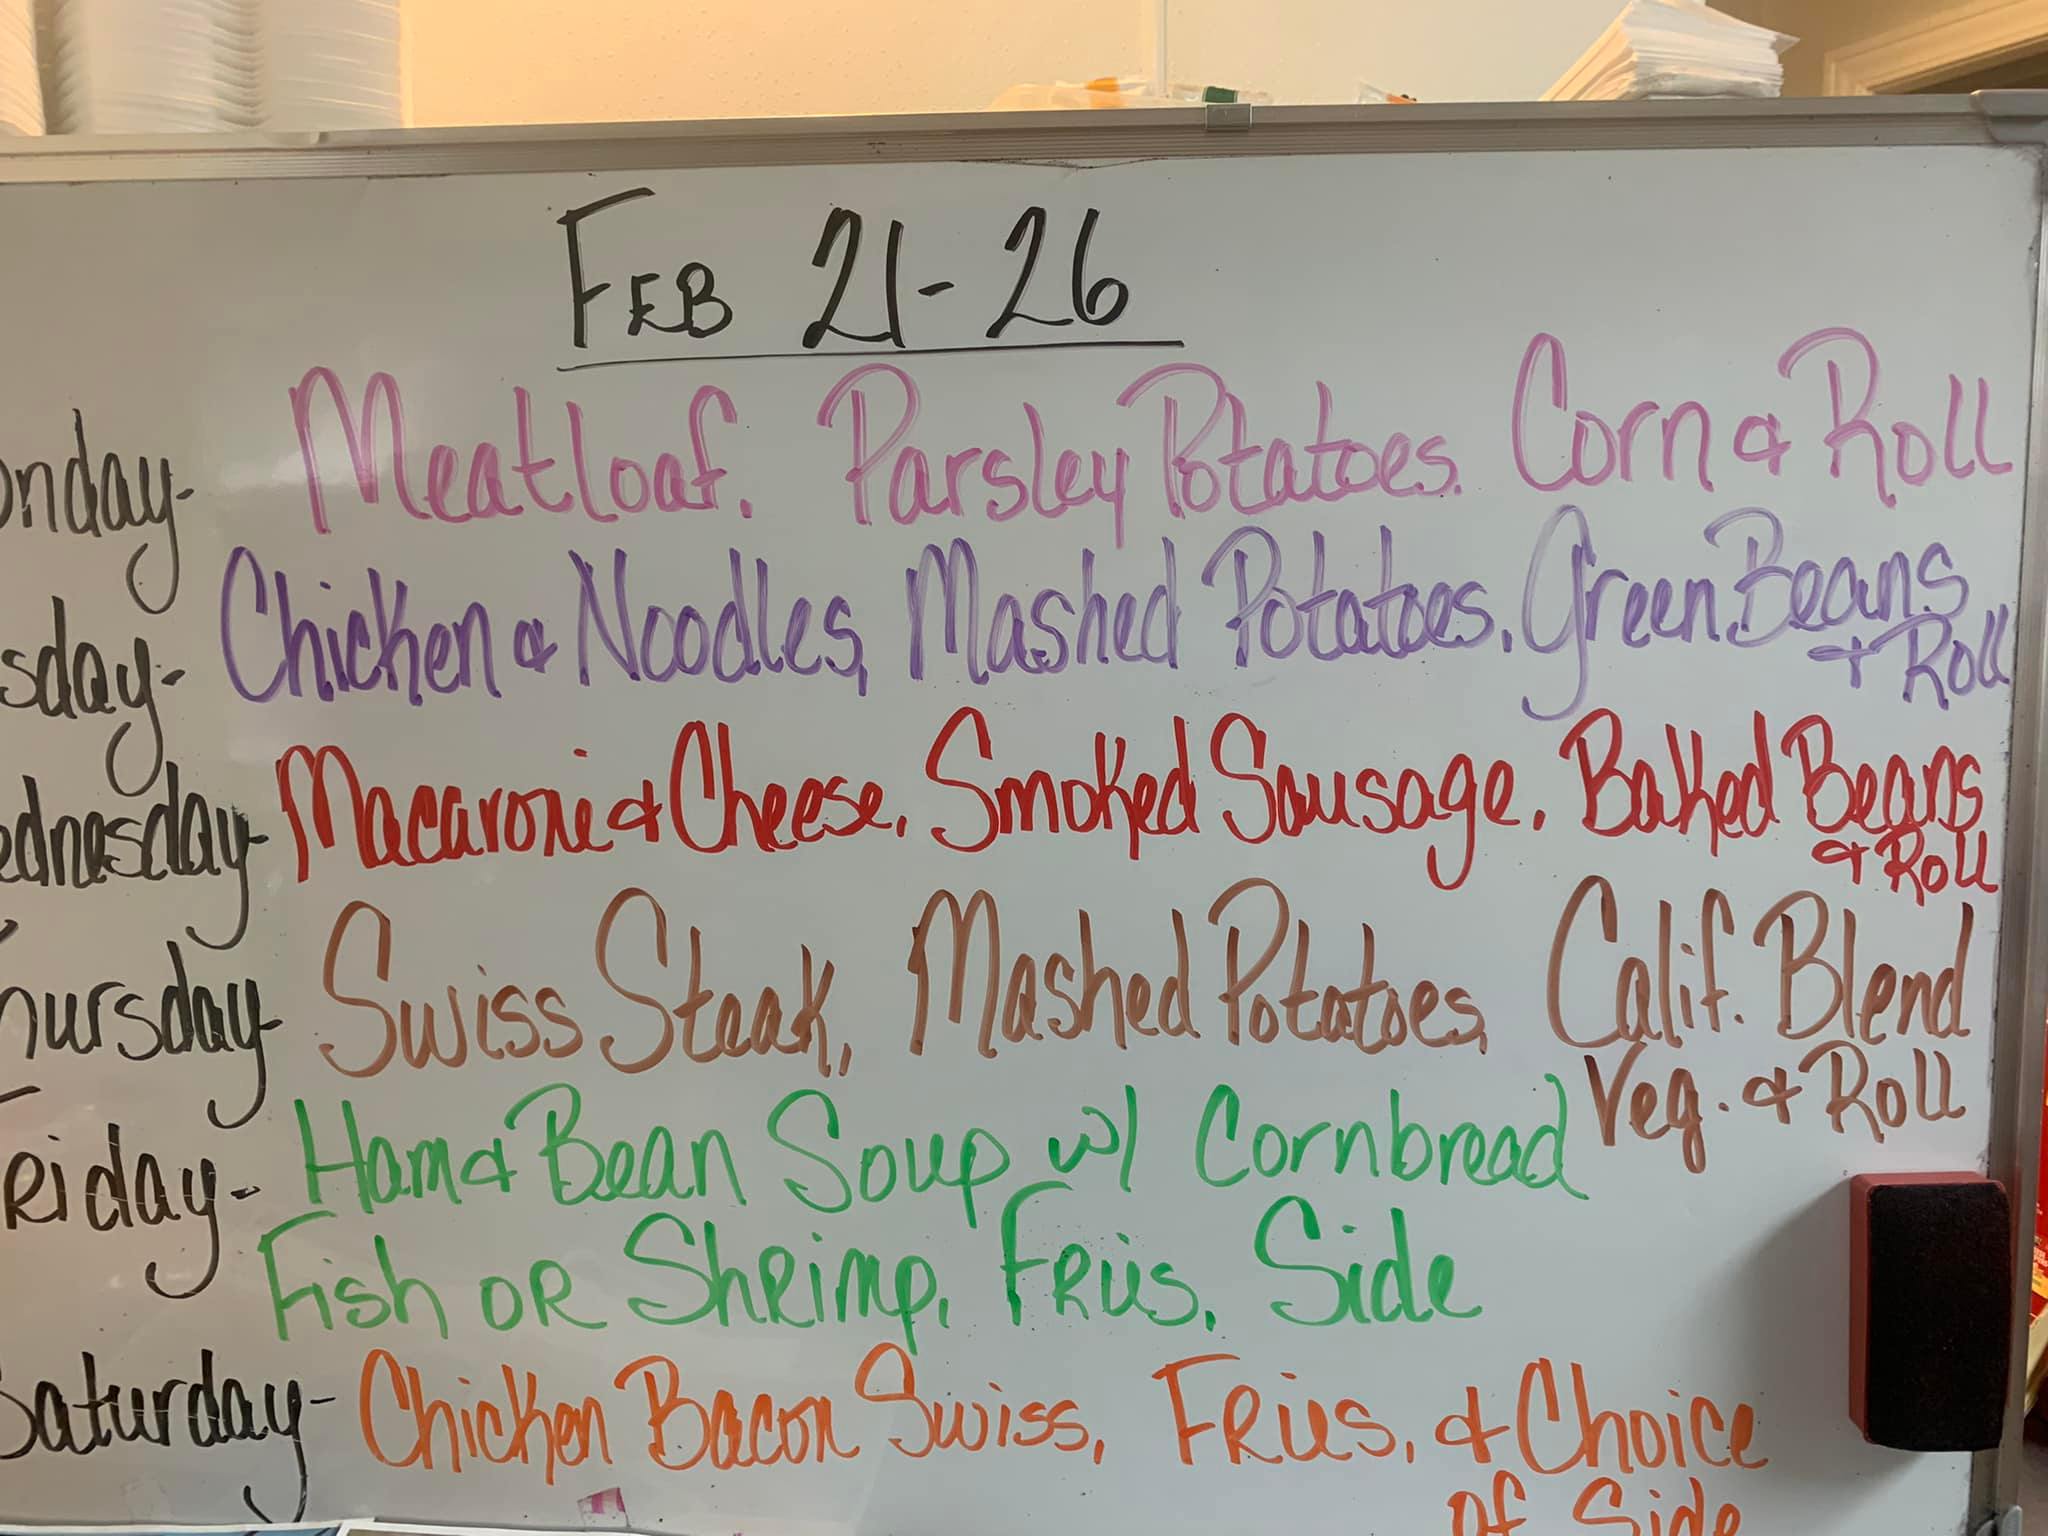 FEB 21-26
onday- Meatloaf. Parsley Potatoes. Corn & Roll
sday- Chicken & Noodles, Mashed Potatoes. Green Beans
& Roll
ednesday- Macaroni & Cheese. Smoked Sausage. Baked Beans
& Roll
hursday- Swiss Steak, Mashed Potatoes, Calif. Blend
Veg. & Roll
Friday- Ham & Bean Soup w/ Cornbread
Fish or Shrimp. Fries. Side
Saturday- Chicken Bacon Swiss, Fries, & Choice
of Side